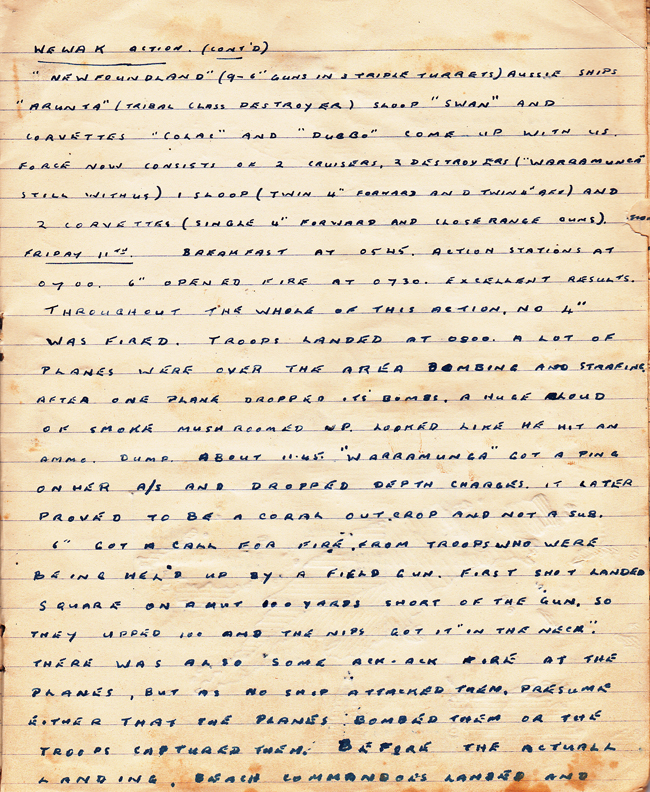 WEWAK ACTION. (CONT'D)
"NEWFOUNDLAND" (9-6" GUNS IN 3 TRIPLE TURRETS) AUSSIE SHIPS
"ARUNTA" (TRIBAL CLASS DESTROYER) SLOOP "SWAN" AND
CORVETTES "COLAC" AND "DUBBO" COME UP WITH US.
FORCE NOW CONSISTS OF 2 CRUISERS, 2 DESTROYERS ("WARRAMUNGA"
STILL WITH US) 1 SLOOP (TWIN 4" FORWARD AND TWIN 4" AFT) AND
2 CORVETTES (SINGLE 4" FORWARD AND CLOSE RANGE GUNS).
FRIDAY 11TH. BREAKFAST AT 0545. ACTION STATIONS AT
0700. 6" OPENED FIRE AT 0730. EXCELLENT RESULTS.
THROUGHOUT THE WHOLE OF THIS ACTION, NO 4"
WAS FIRED. TROOPS LANDED AT 0800. A LOT OF
PLANES WERE OVER THE AREA BOMBING AND STRAFING.
AFTER ONE PLANE DROPPED ITS BOMBS, A HUGE CLOUD
OF SMOKE MUSHROOMED UP. LOOKED LIKE HE HIT AN
AMMO. DUMP. ABOUT 11.45 "WARRAMUNGA" GOT A PING
ON HER A/S AND DROPPED DEPTH CHARGES. IT LATER
PROVED TO BE A CORAL OUTCROP AND NOT A SUB.
6" GOT A CALL FOR FIRE FROM TROOPS WHO WERE
BEING HELD UP BY A FIELD GUN. FIRST SHOT LANDED
SQUARE ON A HUT 100 YARDS SHORT OF THE GUN, SO
THEY UPPED 100 AND THE NIPS GOT IT "IN THE NECK".
THERE WAS ALSO SOME ACK-ACK FIRE AT THE
PLANES, BUT AS NO SHIP ATTACKED THEM, PRESUME
EITHER THAT THE PLANES BOMBED THEM OR THE
TROOPS CAPTURED THEM. BEFORE THE ACTUALL
LANDING, BEACH COMMANDOES LANDED AND